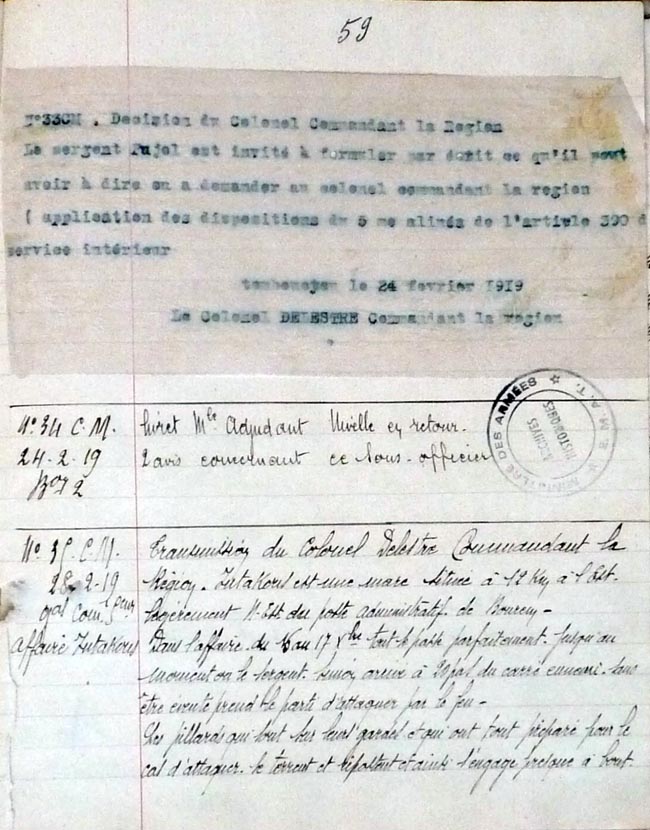 59
N°33CM . Decision du Colonel Commandant la Region
Le sergent Pujol est invité à formuler par écrit ce qu'il peut
avoir à dire ou a demander au colonel commandant la region
( application des dispositions du 5 me alinéa de l'article 390 d
service intérieur
le 24 fevrier 1919
Le Colonel DELESTRE Commandant la region
N° 34 C.M. livret Mle Adjudant Nivelle en retour.
24-2-19 2 avis concernant ce Sous-officier
MINISTÈRE DES ARMÉES
ARCHIVES HISTORIQUES
N° 35 C.M. Transmission du Colonel Delestre Commandant la
28-2-19 Région. Intakous est une mare située à 12 Km à l'Est.
légèrement N. Est du poste administratif de Bourem.
Affaire Intakous Dans l'affaire du au 17 Xbre tout se passe parfaitement jusqu'au
moment où le sergent arrive à pas du carré ennemi. Sans
être éventé prend le parti d'attaquer par le feu -
Les pillards qui sont sur leurs gardes et qui ont tout préparé pour le
cas d'attaque. se terrent et ripostent et ainsi s'engage presque à bout.